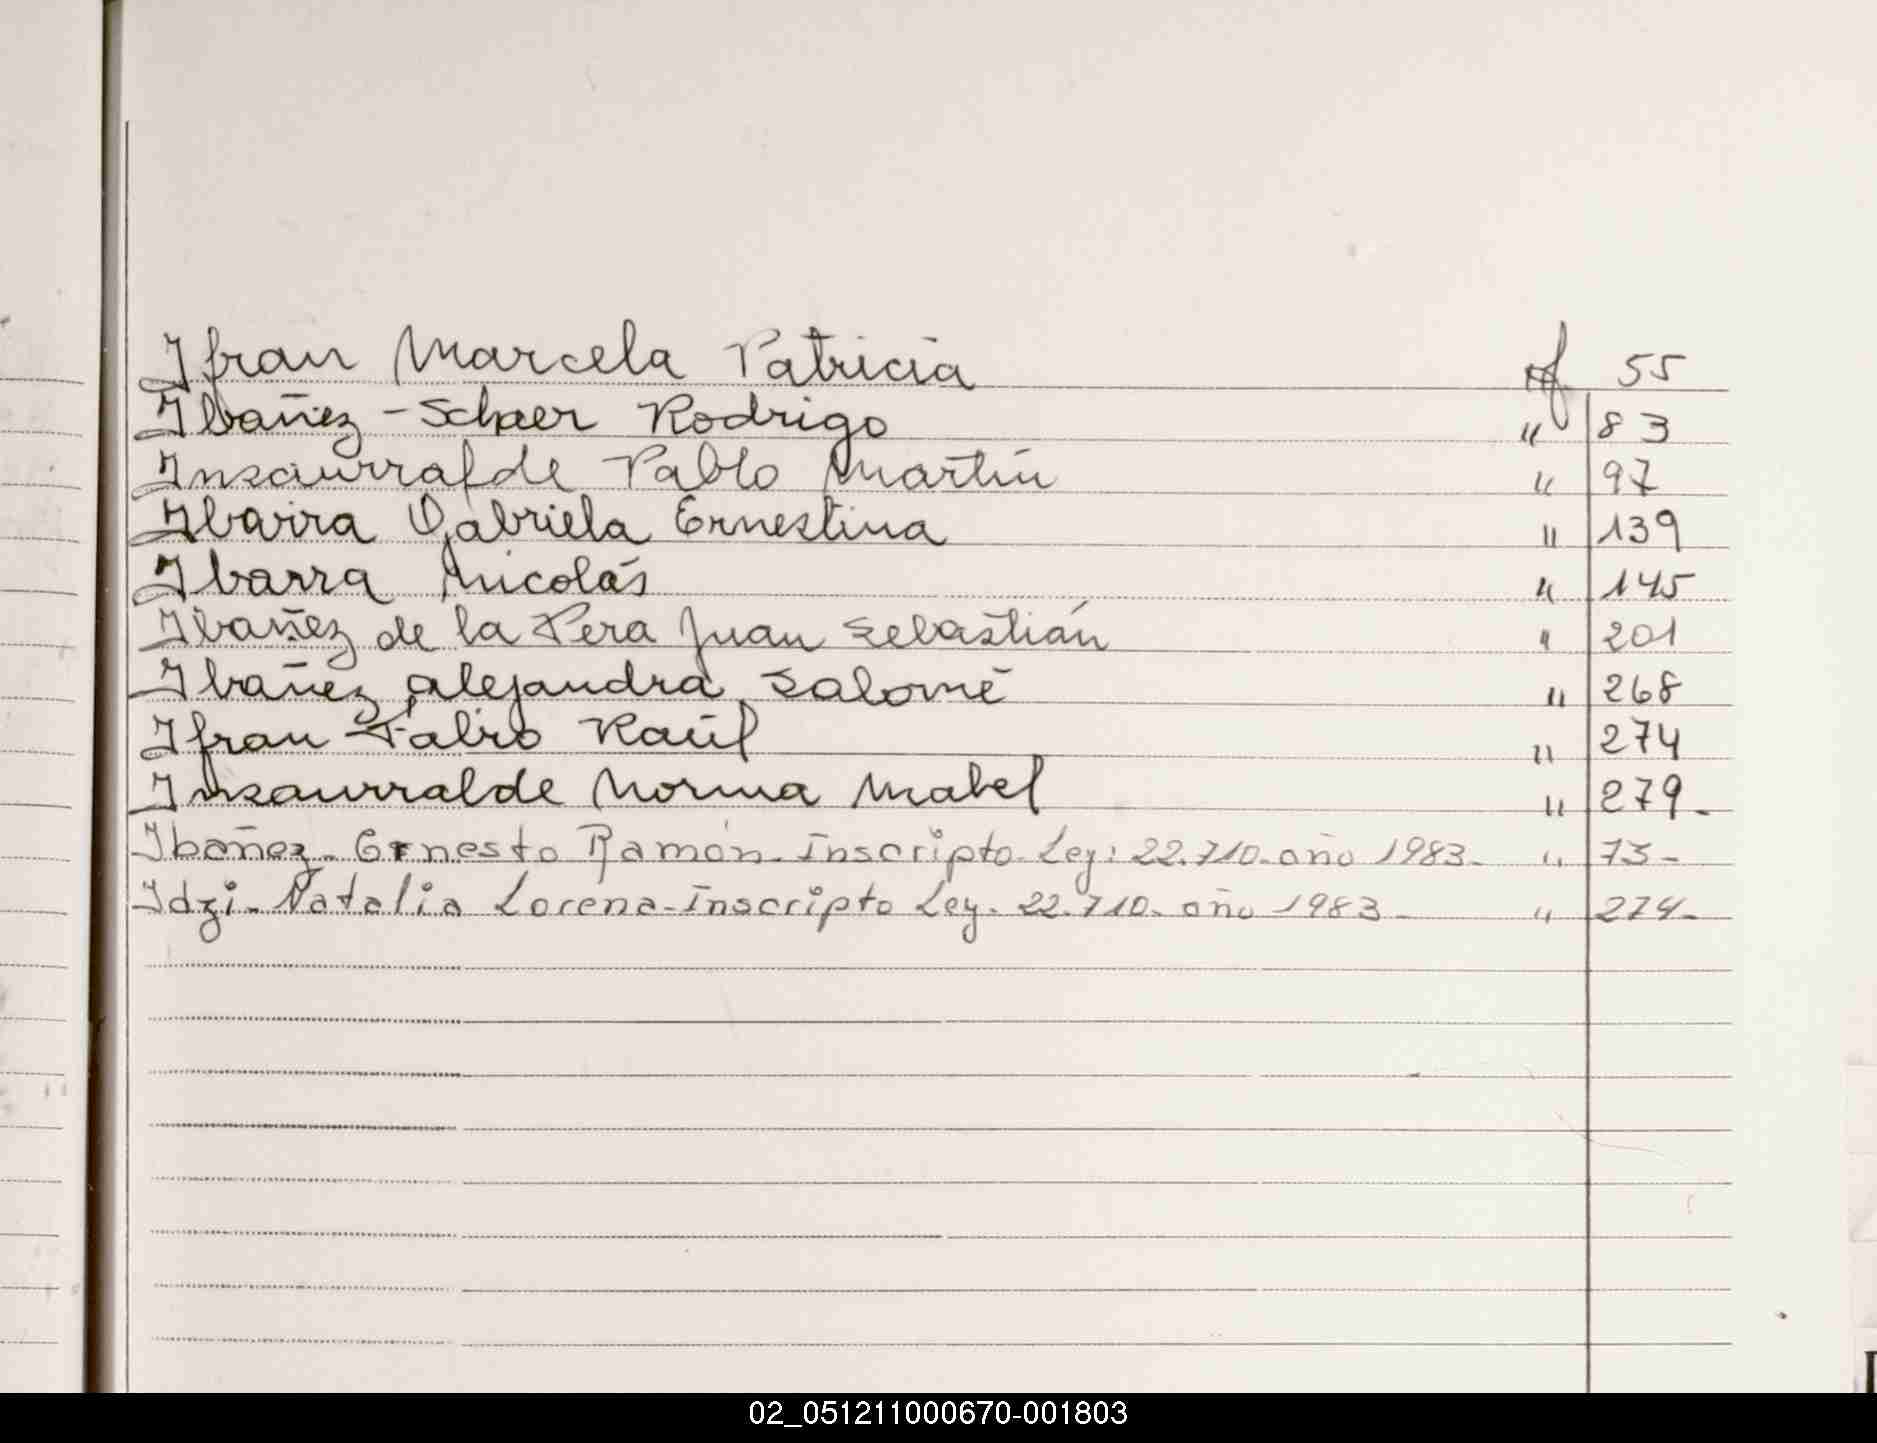 Ifran Marcela Patricia f 55
Ibañez - Schaer Rodrigo " 83
Insaurralde Pablo Martín " 97
Ibarra Gabriela Ernestina " 139
Ibarra Nicolás " 145
Ibañez de la Pera Juan Sebastián " 201
Ibañez Alejandra Salomé " 268
Ifran Fabio Raúl " 274
Insaurralde Norma Mabel " 279.
Ibañez - Ernesto Ramón - Inscripto Ley: 22.710 - año 1983 - " 73 -
Idzi - Natalia Lorena - Inscripto Ley. 22.710 - año 1983 - " 274 -
02_051211000670-001803